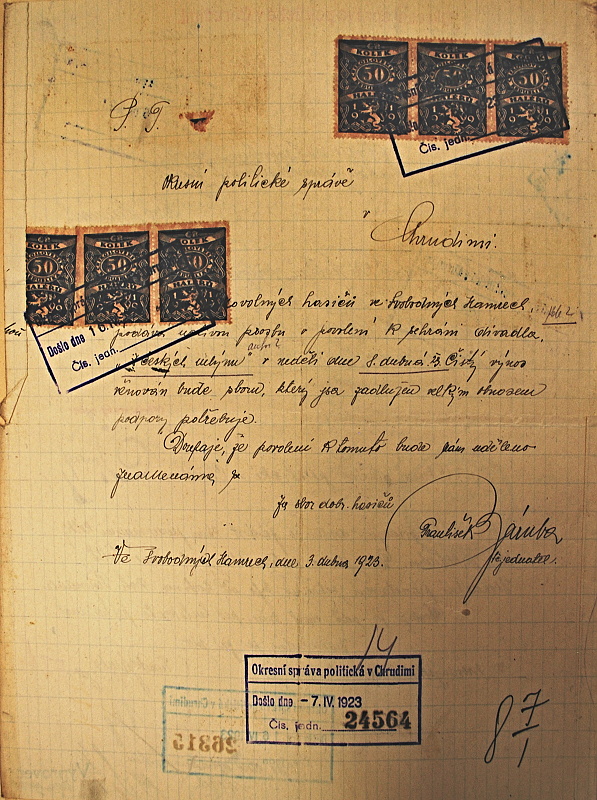 P. T.
ČR. KOLEK 50 HALÉŘŮ 1919
ČR. KOLEK 50 HALÉŘŮ 1919
ČR. KOLEK 50 HALÉŘŮ 1919
Čís. jedn.
Okresní politické správě
v
Chrudimi.
ČR. KOLEK 50 HALÉŘŮ
ČR. KOLEK 50 HALÉŘŮ
KOLEK 50 HALÉŘŮ
Došlo dne 1
Čís. jedn.
hasičů ve Svobodných Hamrech
podává prosbu o povolení k sehrání divadla
v neděli dne 8. dubna Čistý výnos
věnován bude sboru, který jsa zadlužen velkým obnosem
podpory potřebuje.
Doufaje, že povolení k tomuto bude nám uděleno
znamenáme se
za sbor dobr. hasičů
František Záruba
jednatel.
Ve Svobodných Hamrech, dne 3. dubna 1923.
14
Okresní správa politická v Chrudimi
Došlo dne - 7. IV. 1923
Čís. jedn. 24564
26315
8 7/1